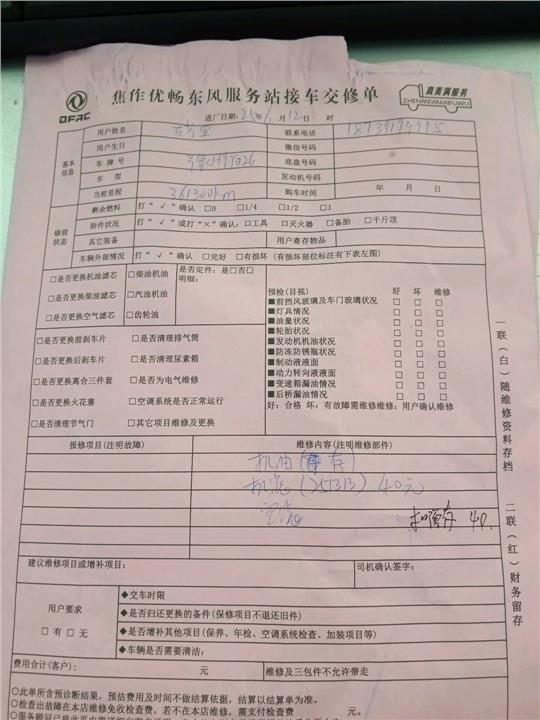 焦作优畅东风服务站接车交修单
DFAC
真美满服务
ZHENMEIMANFUWU
进厂日期: 年6月12日 时
基本信息
用户姓名
联系电话
用户生日
微信号码
车牌号
底盘号码
车型
发动机号码
当前里程 361300km
购车时间 年 月 日
修前状态
剩余燃料 打“√”确认 □0 □1/4 □1/2 □1
附件状况 打“√”或打“×”确认: □工具 □灭火器 □备胎 □千斤顶
其它装备 用户寄存物品
车辆外部情况 打“√”确认 □完好 □有损坏(有损坏部位标注有下表左图)
□是否更换机油滤芯 □柴油机油
□是否更换柴油滤芯 □汽油机油
□是否更换空气滤芯 □齿轮油
是否定件: 是□否□
明细:
□是否更换前刹车片 □是否清理排气筒
□是否更换后刹车片 □是否清理尿素箱
□是否更换离合三件套 □是否为电气维修
□是否更换火花塞 □空调系统是否正常运行
□是否清理节气门 □其它项目维修及更换
预检(目视) 好 坏 维修
■前挡风玻璃及车门玻璃状况 □ □ □
■灯具情况 □ □ □
■油量状况 □ □ □
■轮胎状况 □ □ □
■发动机机油状况 □ □ □
■防冻防锈瓶状况 □ □ □
■制动液液面 □ □ □
■动力转向液液面 □ □ □
■变速箱漏油情况 □ □ □
■后桥漏油情况 □ □ □
好: 合格 坏: 有故障需维修维修: 用户确认维修
报修项目(注明故障) 维修内容(注明维修部件)
机油( 存)
机滤(JS1313) 40元
40.
建议维修项目或增补项目: 司机确认签字:
用户要求
□有 □无
◆交车时限
◆是否归还更换的备件(保修项目不退还旧件)
◆是否增补其他项目(保养、年检、空调系统检查、加装项目等)
◆车辆是否需要清洁:
费用合计(客户): 元 维修及三包件不允许带走
○此单所含预诊断结果, 预估费用及时间不做结算依据, 结算以结算单为准。
○检查出故障在本店维修免收检查费, 若不在本店维修, 需支付检查费 元
一联(白)随维修资料存档
二联(红)财务留存